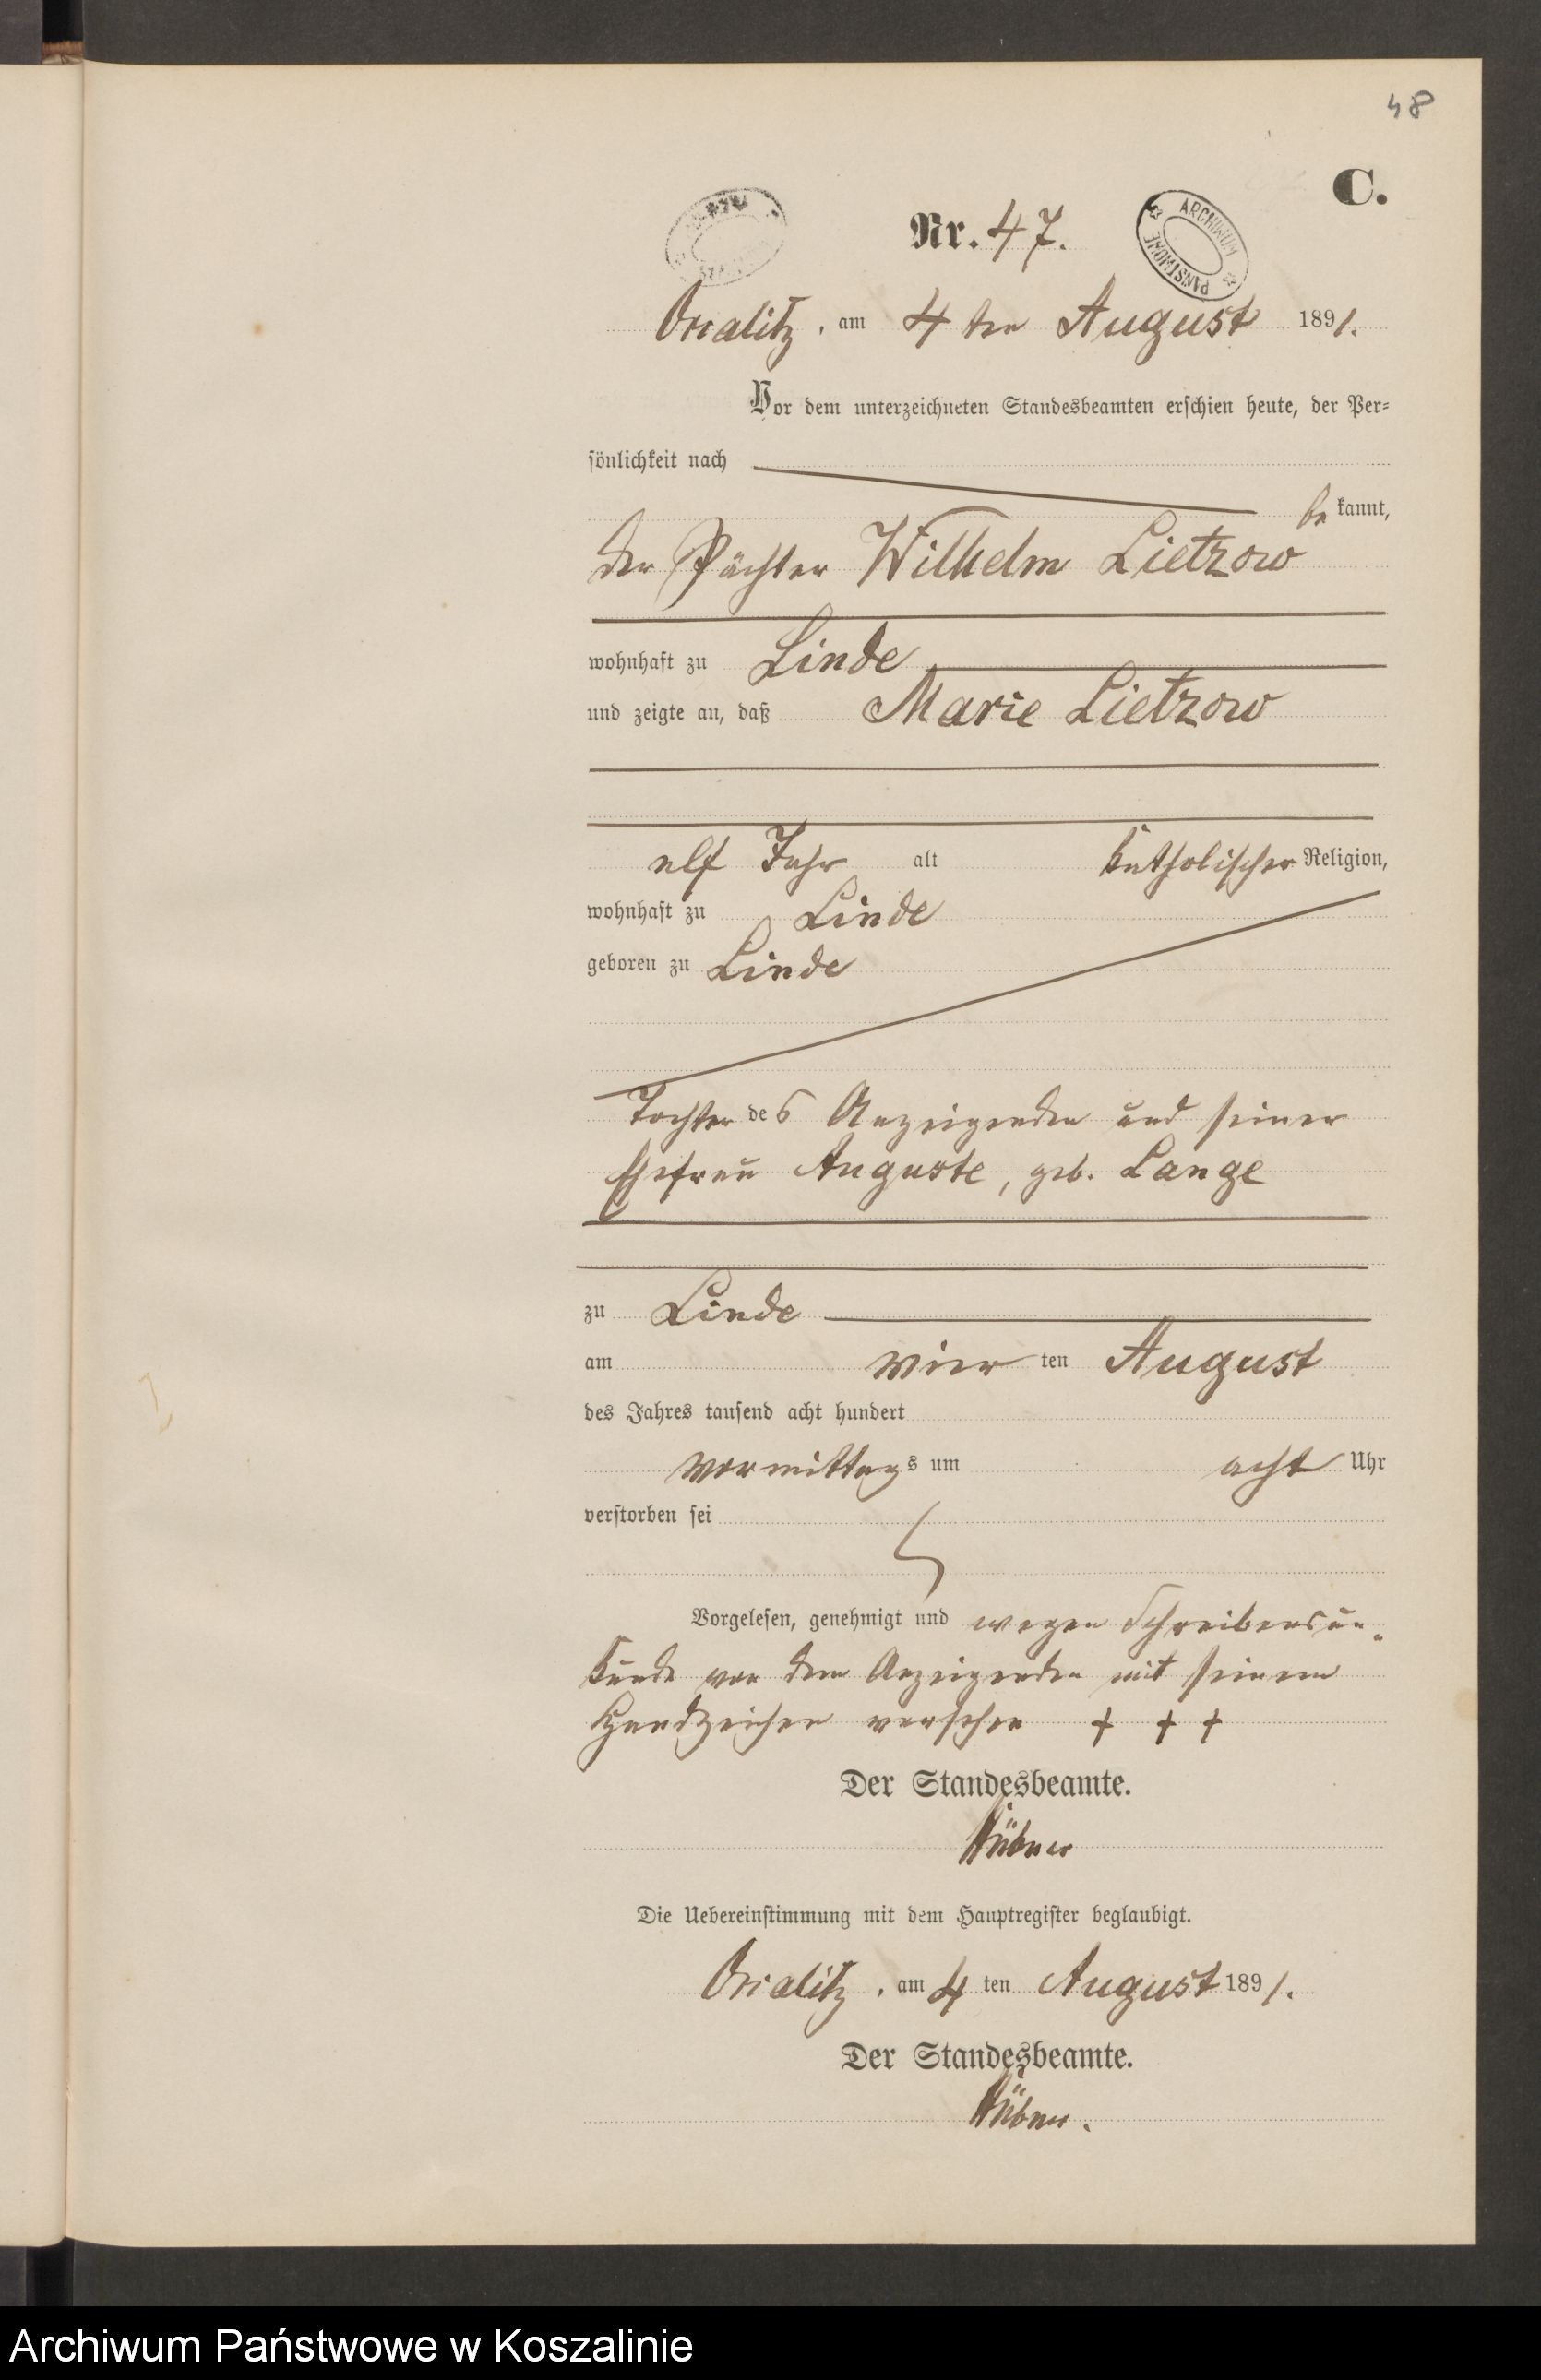 48
C.
Nr. 47.
ARCHIWUM PAŃSTWOWE
am 4 ten August 1891.
Vor dem unterzeichneten Standesbeamten erschien heute, der Per-
sönlichkeit nach
be kannt,
der Pächter Wilhelm Lietzow
wohnhaft zu Linde
und zeigte an, daß Marie Lietzow
elf Jahr alt katholischer Religion,
wohnhaft zu Linde
geboren zu Linde
Tochter des Anzeigenden und seiner
Ehefrau Auguste, geb. Lange
zu Linde
am vier ten August
des Jahres tausend acht hundert
vormittags um acht Uhr
verstorben sei
Vorgelesen, genehmigt und wegen Schreibensun-
kunde von dem Anzeigenden mit seinem
Handzeichen versehen + + +
Der Standesbeamte.
Hübner
Die Uebereinstimmung mit dem Hauptregister beglaubigt.
am 4 ten August 1891.
Der Standesbeamte.
Hübner.
Archiwum Państwowe w Koszalinie